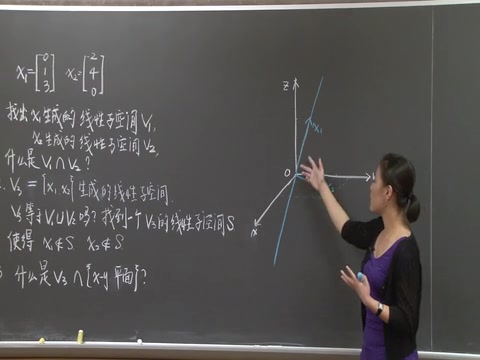 x₁=[0 1 3] x₂=[2 4 0]
找出 x₁ 生成的线性子空间 V₁,
x₂ 生成的线性子空间 V₂,
什么是 V₁∩V₂?
2. V₃ = {x₁, x₂} 生成的线性子空间.
V₃ 等于 V₁∪V₂ 吗? 找到一个 V₃ 的线性子空间 S
使得 x₁∉S x₂∉S
什么是 V₃∩{x-y 平面}?
z
x₁
0
x